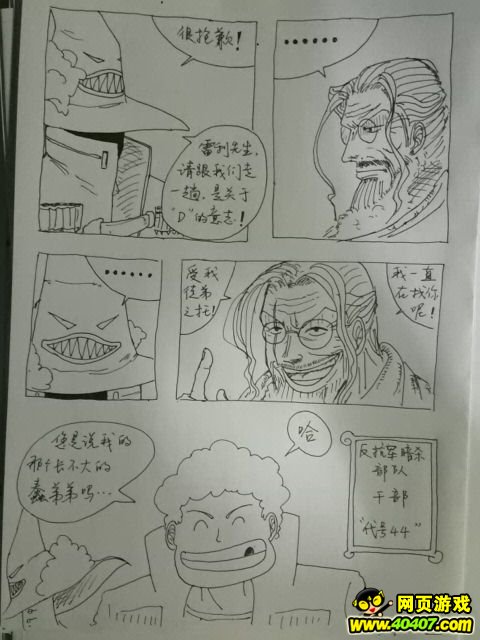 很抱歉!
……
雷利先生,
请跟我们走
一趟,是关于
"D"的意志!
……
受我
徒弟
之托!
我一直
在找你
呢!
您是说我的
那个长不大的
蠢弟弟吗…
哈
反抗军暗杀
部队
干部
"代号44"
网页游戏
www.40407.com